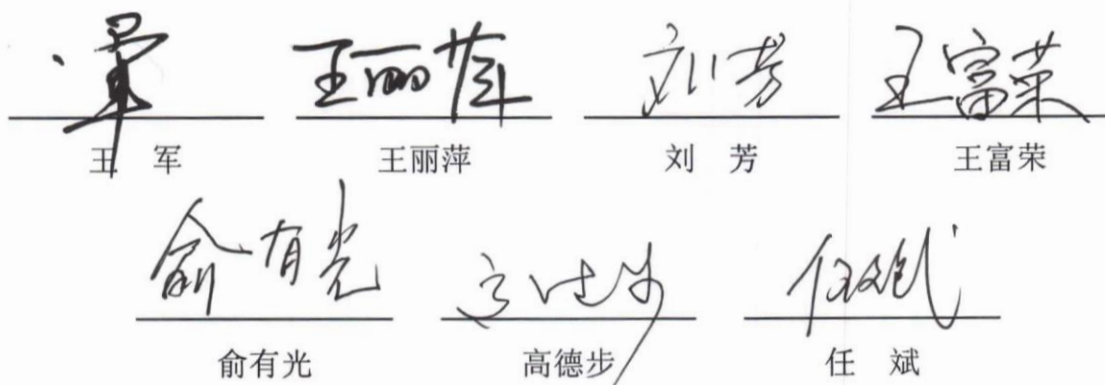 王丽萍 刘芳 王富荣
王 军 王丽萍 刘 芳 王富荣
俞有光 高德步 任斌
俞有光 高德步 任 斌